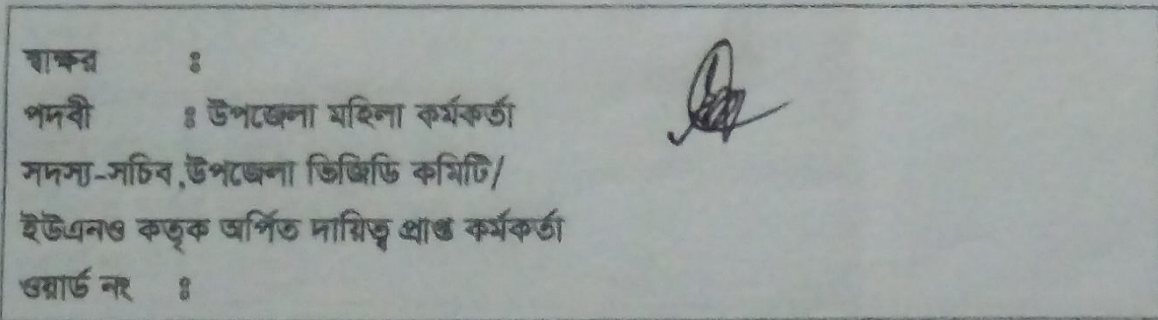 স্বাক্ষর :
পদবী : উপজেলা মহিলা কর্মকর্তা
সদস্য-সচিব,উপজেলা ভিজিডি কমিটি/
ইউএনও কতৃক অর্পিত দায়িত্ব প্রাপ্ত কর্মকর্তা
ওয়ার্ড নং :